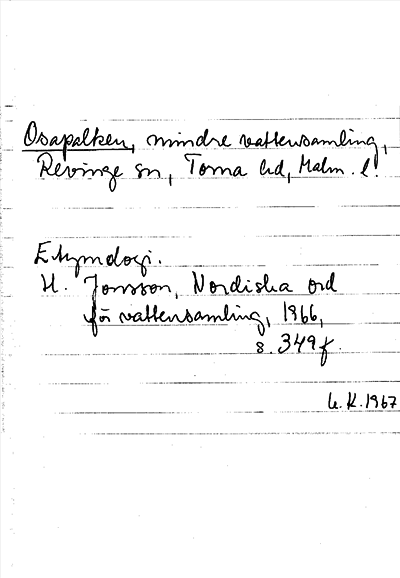 Osapalken, mindre vattensamling,
Revinge sn, Torna hd, Malm. l.
Etymologi.
H. Jonsson, Nordiska ord
för vattensamling, 1966,
s. 349f.
G.K.1967